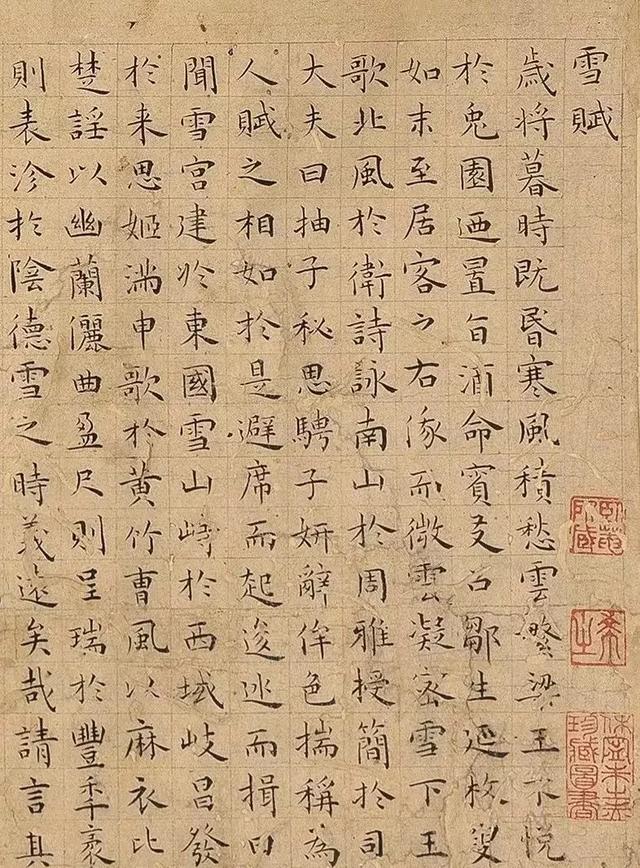 雪賦
歲將暮時既昬寒風積愁雲繁梁王不悅
於兔園迺置旨酒命賓友召鄒生延枚叟
如末至居客之右俄而微雲凝密雪下王
歌北風於衛詩詠南山於周雅授簡於司
大夫曰抽子秘思騁子妍辭侔色揣稱為
人賦之相如於是避席而起逡巡而揖曰
聞雪宮建於東國雪山峙於西域岐昌發
於来思姬滿申歌於黃竹曹風以麻衣比
楚謠以幽蘭儷曲盈尺則呈瑞於豐年袤
則表沴於陰德雪之時義遠矣哉請言其